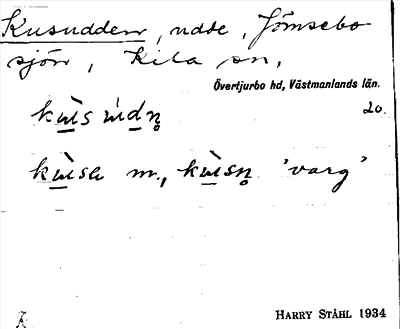 Kusudden, udde, Jömsebo
sjön, Kila sn,
Övertjurbo hd, Västmanlands län.
20.
kùsùdn̥
kùse m., kùsn̥ 'varg'
HARRY STÅHL 1934